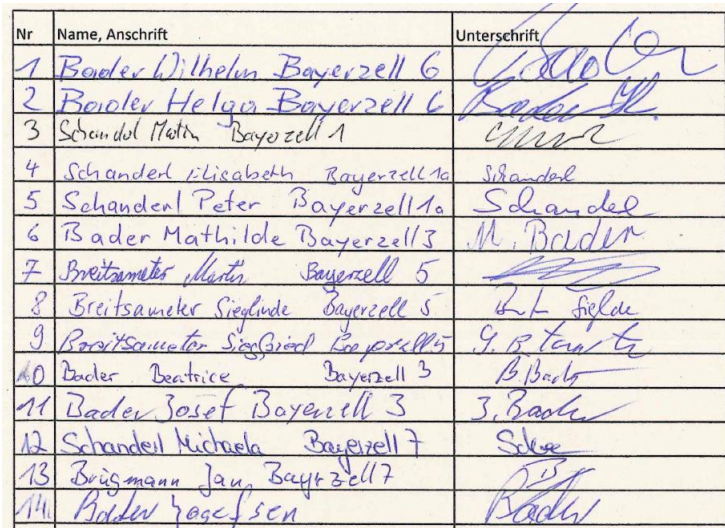 Nr Name, Anschrift Unterschrift
1 Bader Wilhelm Bayerzell 6 Bader
2 Bader Helga Bayerzell 6 Bader H.
3 Schanderl Martin Bayerzell 1
4 Schanderl Elisabeth Bayerzell 1a Schanderl
5 Schanderl Peter Bayerzell 1a Schanderl
6 Bader Mathilde Bayerzell 3 M. Bader
7 Breitsameter Martin Bayerzell 5
8 Breitsameter Sieglinde Bayerzell 5
9 Breitsameter Siegfried Bayerzell 5
10 Bader Beatrice Bayerzell 3 B. Bader
11 Bader Josef Bayerzell 3 J. Bader
12 Schanderl Michaela Bayerzell 7
13 Brügmann Jan, Bayrzell 7
14. Bader Josef sen Bader